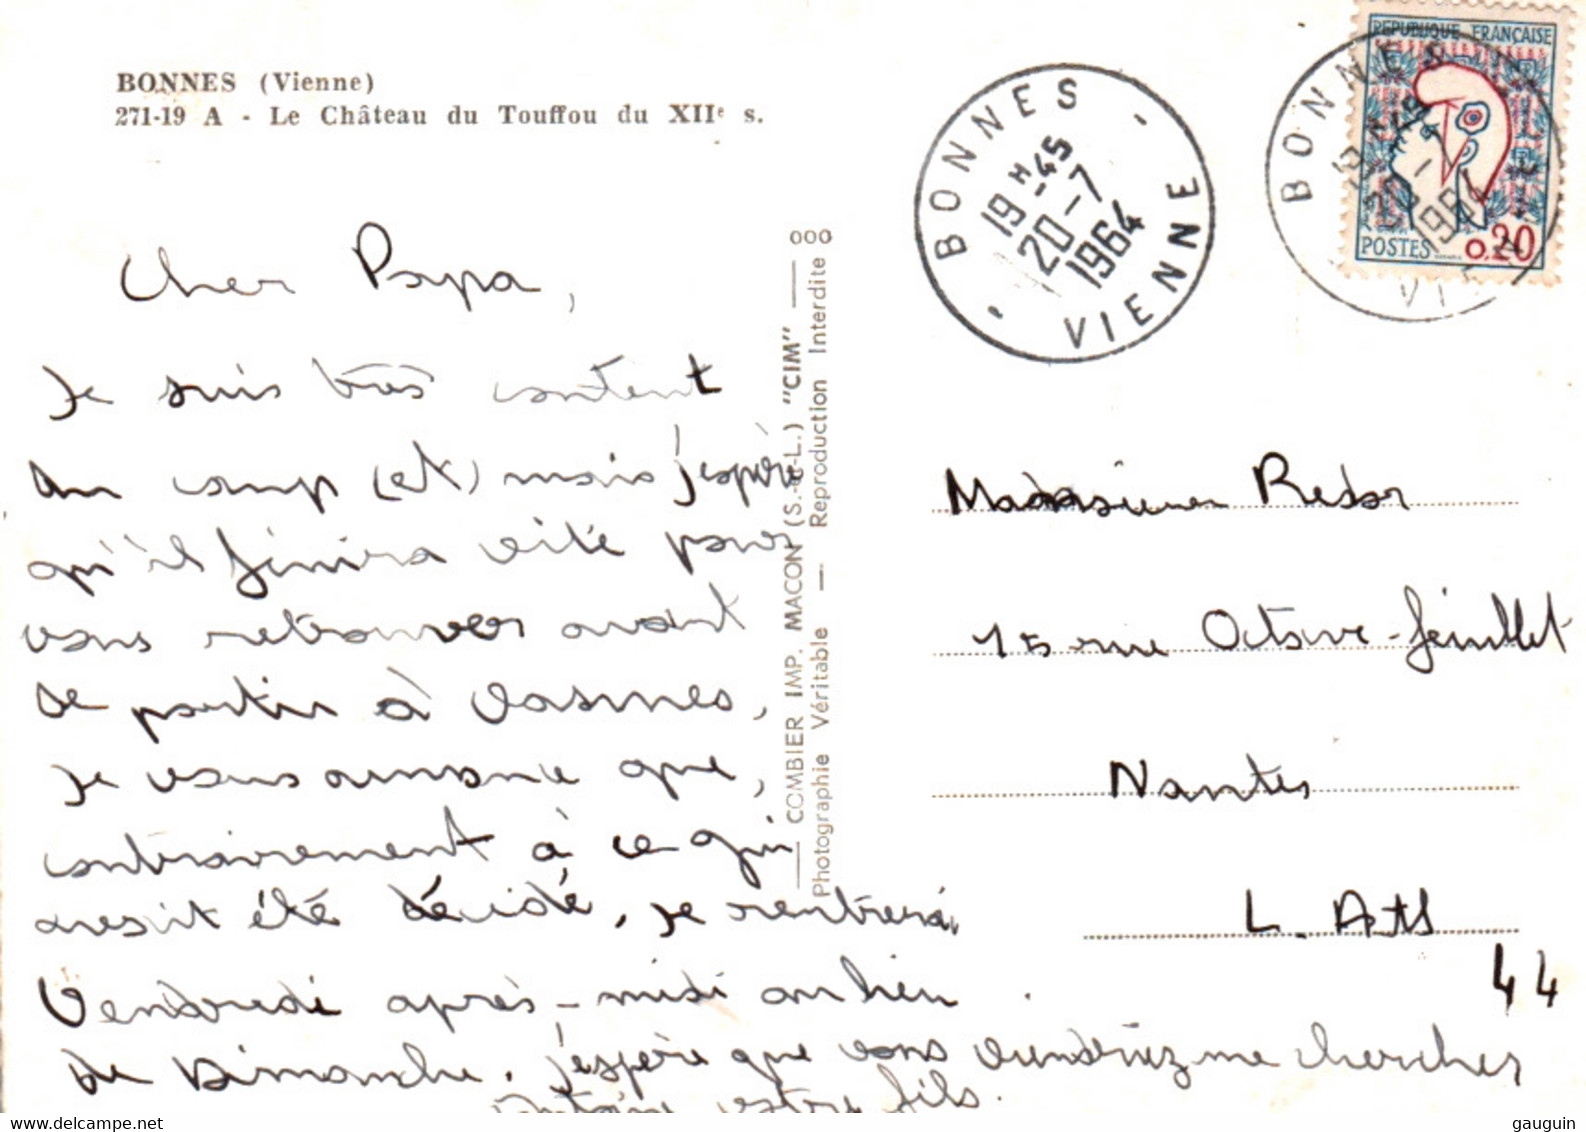 BONNES (Vienne)
271-19 A - Le Château du Touffou du XIIe s.
Cher Papa,
Je suis très content
au camp (et) mais j'espère
qu'il finira vite pour
vous retrouver avant
de partir à Vasmes,
je vous annonce que,
contrairement à ce qui
avait été décidé, je rentrerai
Vendredi après-midi au lieu
de Dimanche, j'espère que vous viendriez me chercher
Antoine votre fils.
COMBIER IMP. MACON (S.-&-L.) "CIM"
Photographie Véritable — Reproduction Interdite
BONNES
19H-45
20-7
1964
VIENNE
BONNES
20-
1964
VIE
REPUBLIQUE FRANÇAISE
POSTES 0,20
Monsieur Redor
15 rue Octave-feuillet
Nantes
L. Atl
44
gauguin ©